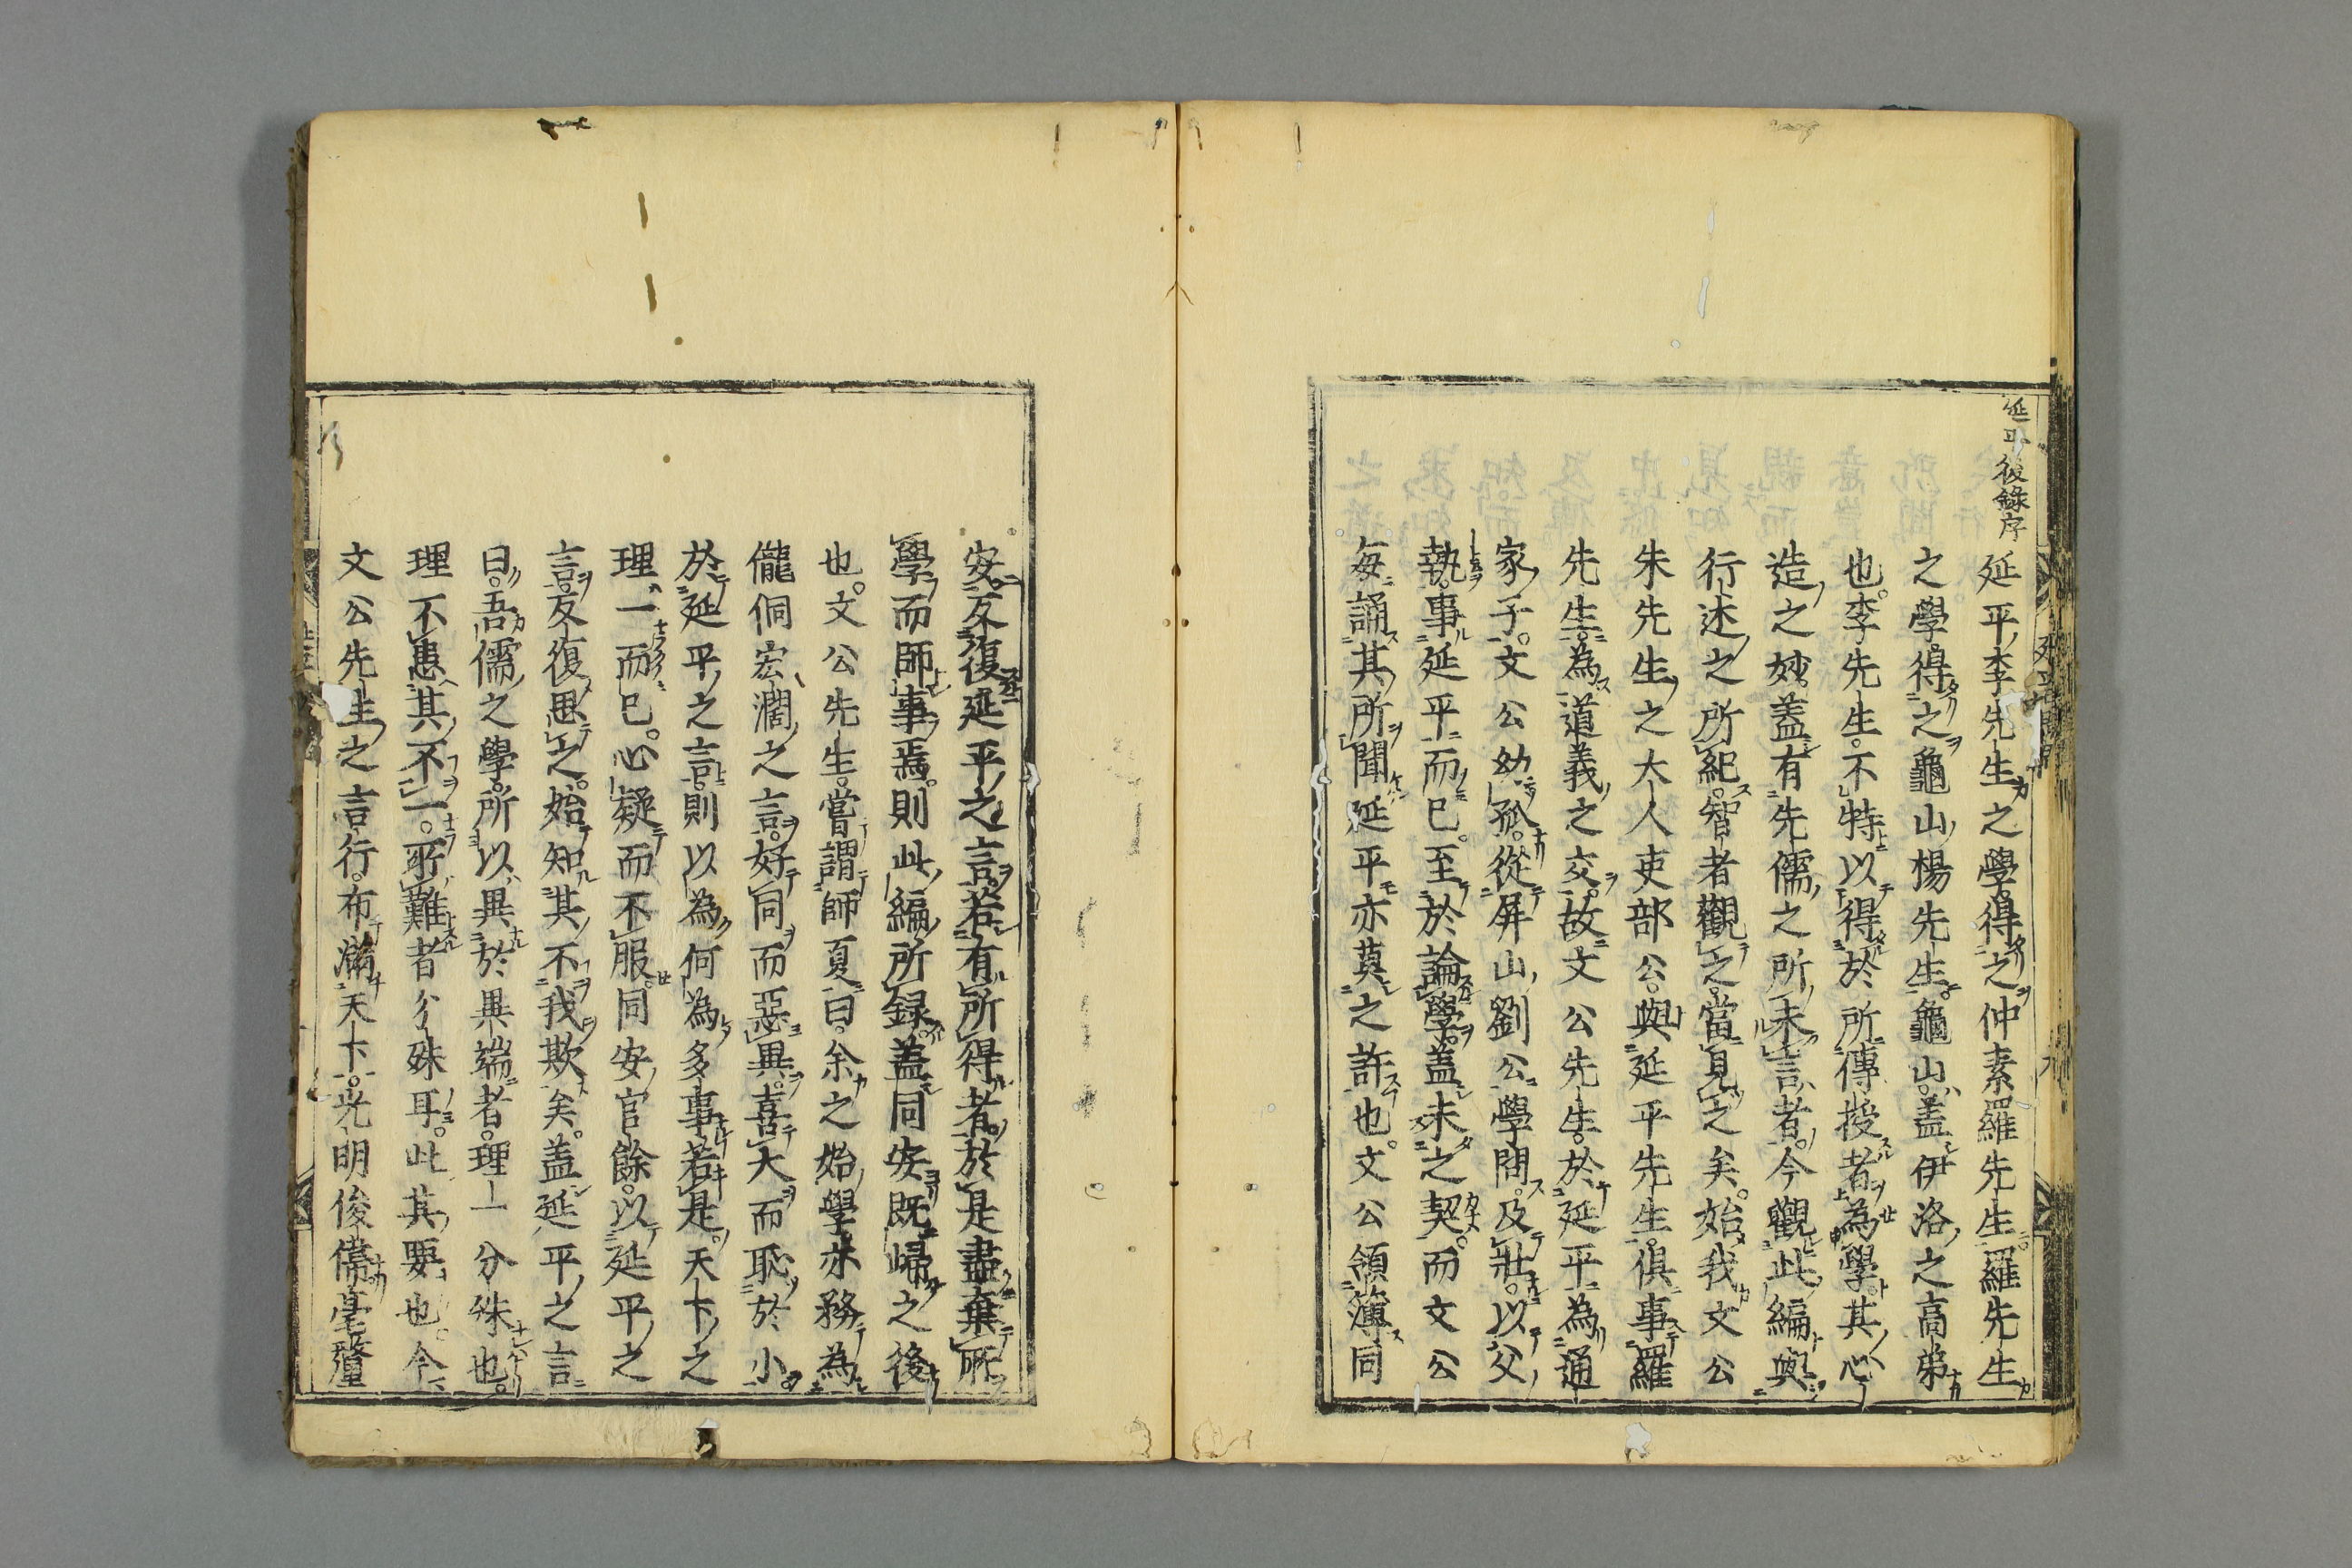 延平後錄序
延平李先生之學得之仲素羅先生羅先生
之學得之龜山楊先生龜山蓋伊洛之高弟
也李先生不特以得於所傳授者為學其心
造之妙蓋有先儒之所未言者今觀此編與
行述之所紀智者觀之當見之矣始我文公
朱先生之大人吏部公與延平先生俱事羅
先生為道義之交故文公先生於延平為通
家子文公幼孤從屏山劉公學問及壯以父
執事延平而已至於論學蓋未之契而文公
每誦其所聞延平亦莫之許也文公領簿同
安反復延平之言若有所得者於是盡棄所
學而師事焉則此編所録蓋同安既歸之後
也文公先生嘗謂師夏曰余之始學亦務為
儱侗宏濶之言好同而惡異喜大而恥於小
於延平之言則以為何為多事若是天下之
理一而已心疑而不服同安官餘以延平之
言反復思之始知其不我欺矣蓋延平之言
曰吾儒之學所以異於異端者理一分殊也
理不患其不一所難者分殊耳此其要也今
文公先生之言行布滿天下光明俊偉毫釐